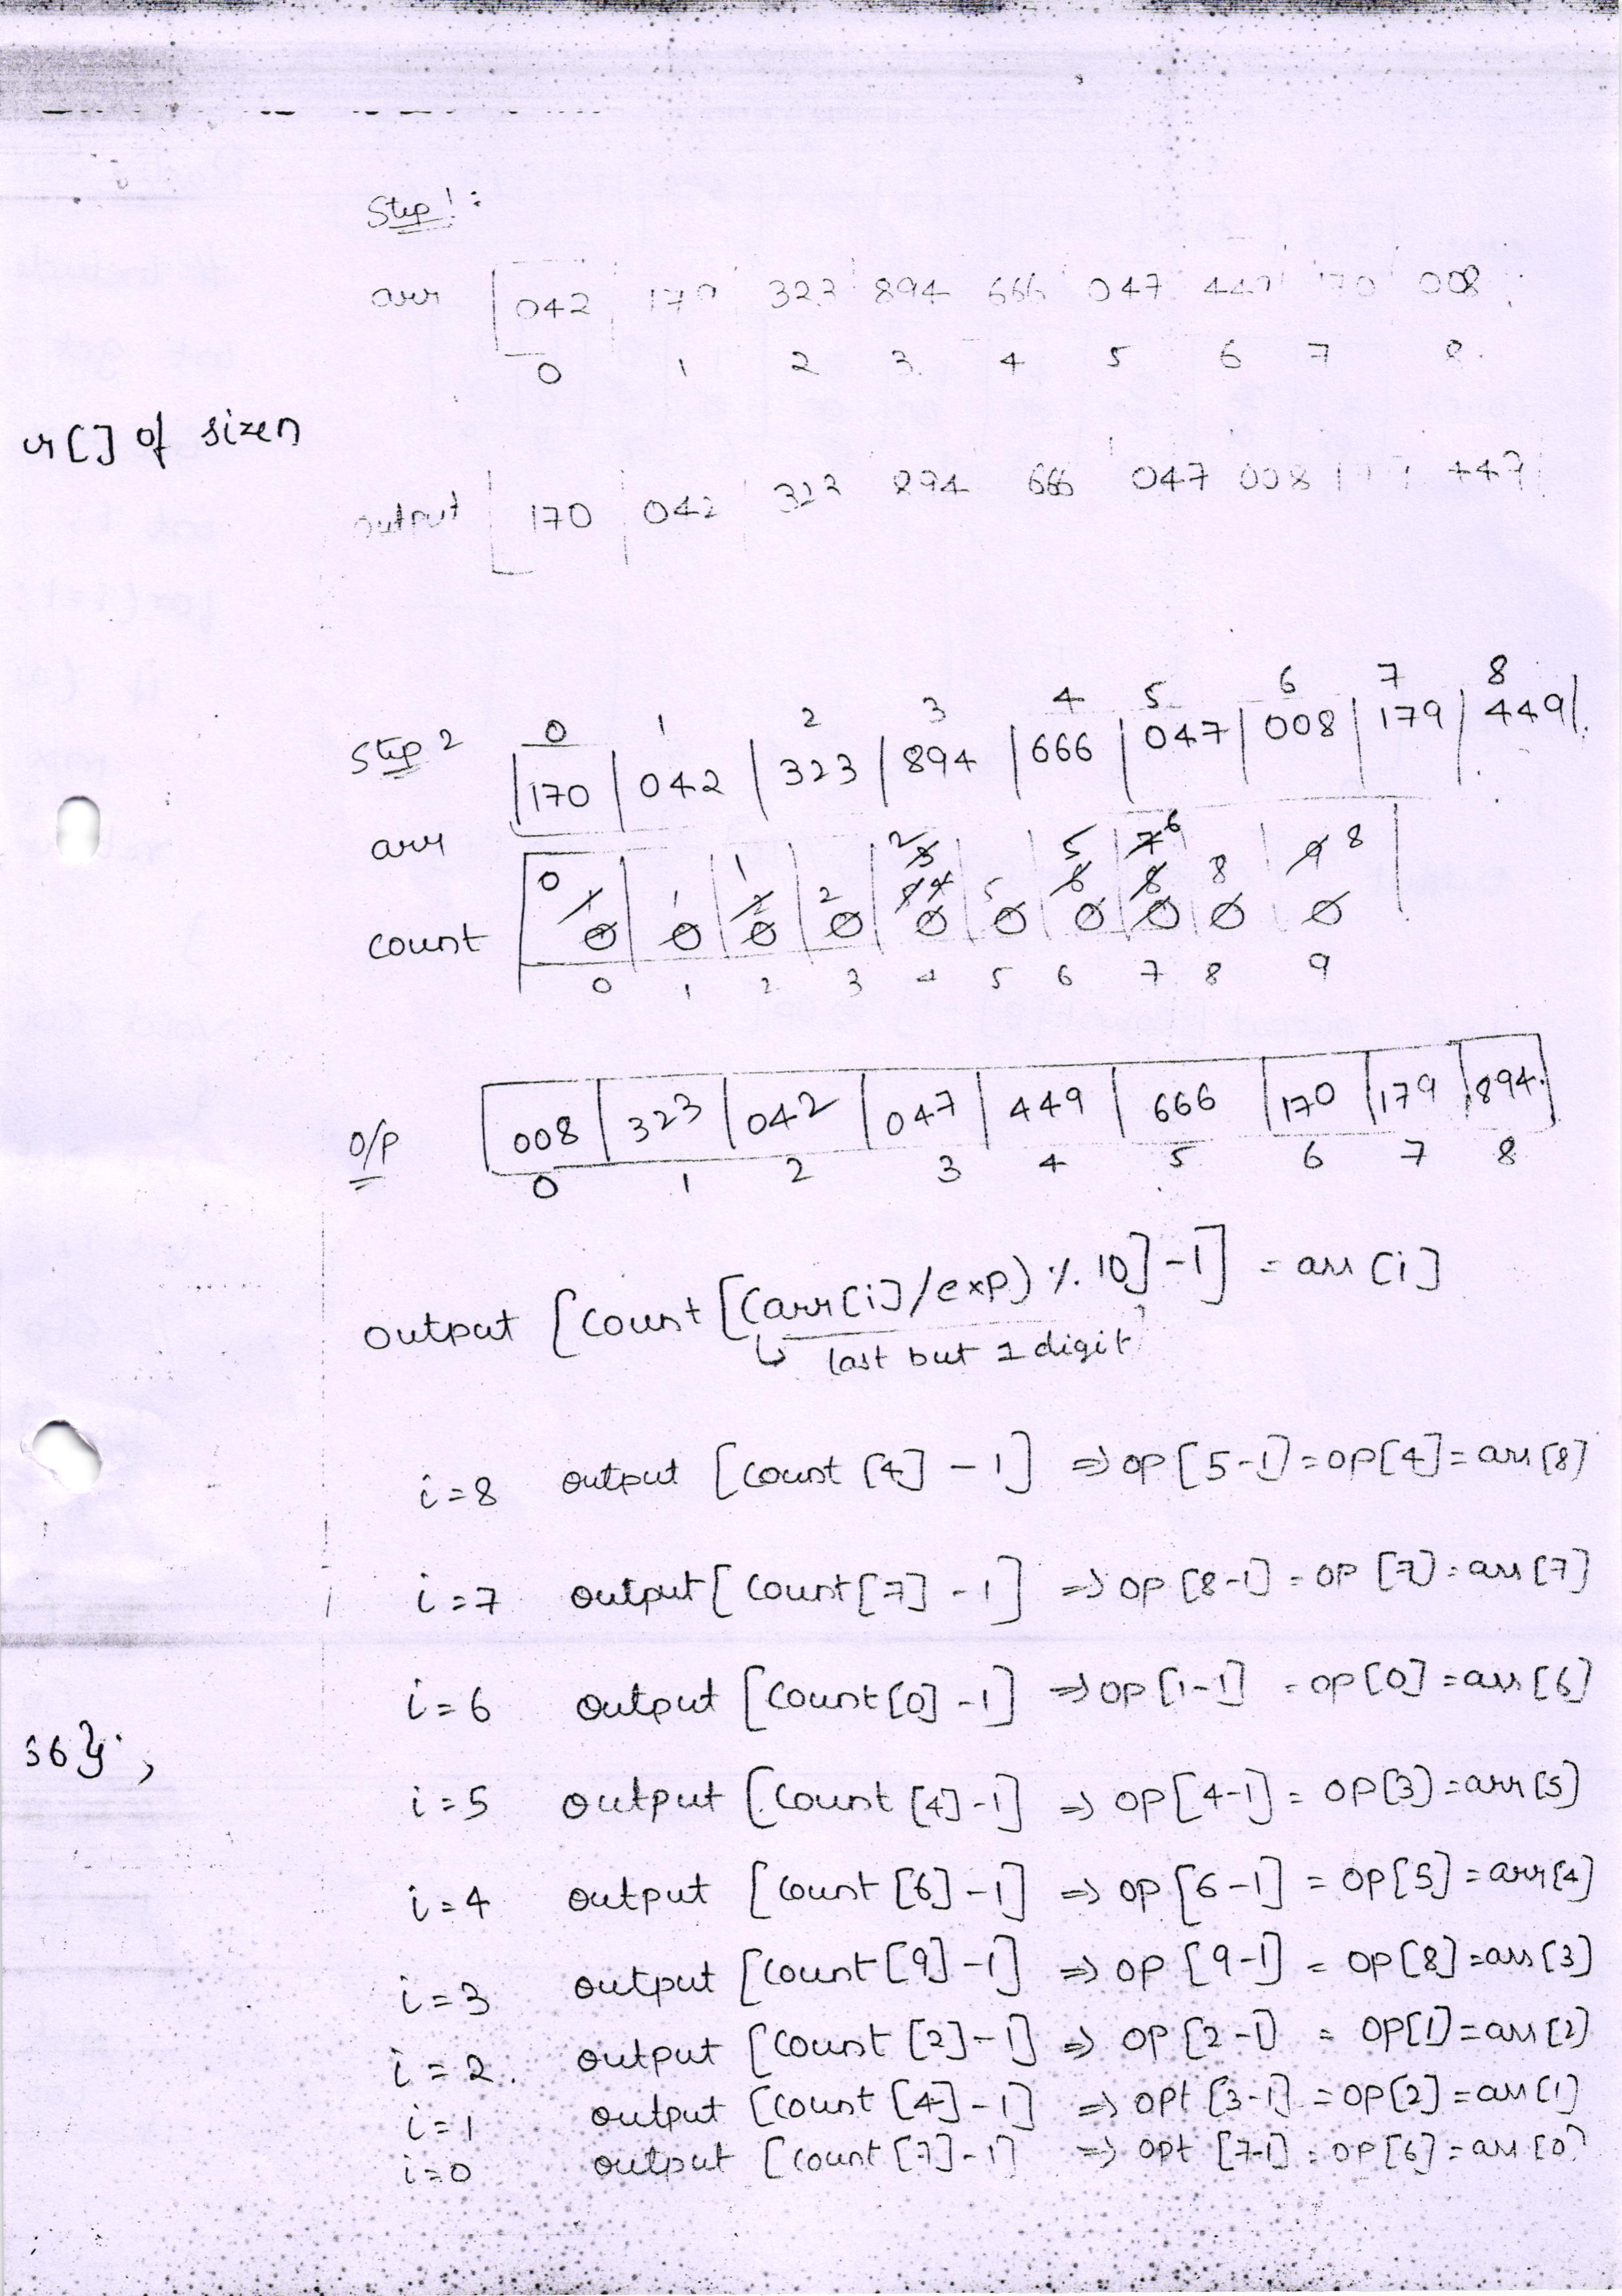 Step 1:
arr 042 179 323 894 666 047 449 170 008
0 1 2 3 4 5 6 7 8
r[] of size n
output 170 042 323 894 666 047 008 449
0 1 2 3 4 5 6 7 8
Step 2 170 042 323 894 666 047 008 179 449
arr
0 1 1 2 2 3 5 5 6 7 6 8 8 9 8
count 0 0 0 0 0 0 0 0 0 0
0 1 2 3 4 5 6 7 8 9
O/P 008 323 042 047 449 666 170 179 894
0 1 2 3 4 5 6 7 8
output [count [(arr[i]/exp) % 10] -1] = arr[i]
last but 1 digit
i=8 output [count [4] - 1] ⇒ op [5-1] = op[4] = arr [8]
i=7 output [count [7] - 1] ⇒ op [8-1] = op [7] = arr [7]
i=6 output [count [0] - 1] ⇒ op [1-1] = op [0] = arr [6]
36};
i=5 output [count [4] - 1] ⇒ op [4-1] = op [3] = arr [5]
i=4 output [count [6] - 1] ⇒ op [6-1] = op [5] = arr [4]
i=3 output [count [9] - 1] ⇒ op [9-1] = op [8] = arr [3]
i=2. output [count [2] - 1] ⇒ op [2-1] = op [1] = arr [2]
i=1 output [count [4] - 1] ⇒ opt [3-1] = op [2] = arr [1]
i=0 output [count [7] - 1] ⇒ opt [7-1] = op [6] = arr [0]